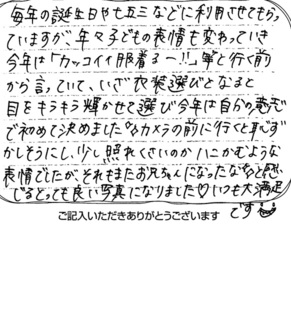 毎年の誕生日や七五三などに利用させてもらっ
ていますが、年々子どもの表情も変わっていき
今年は「カッコイイ服着るー!!」等と行く前
から言っていて、いざ衣装選びとなると
目をキラキラ輝かせて選び今年は自分の意志
で初めて決めました。カメラの前に行くと恥ず
かしそうにし、少し照れくさいのかハニかむような
表情でしたが、それもまたお兄ちゃんになったなぁと感
じるとっても良い写真になりました♡いつも大満足
です
ご記入いただきありがとうございます